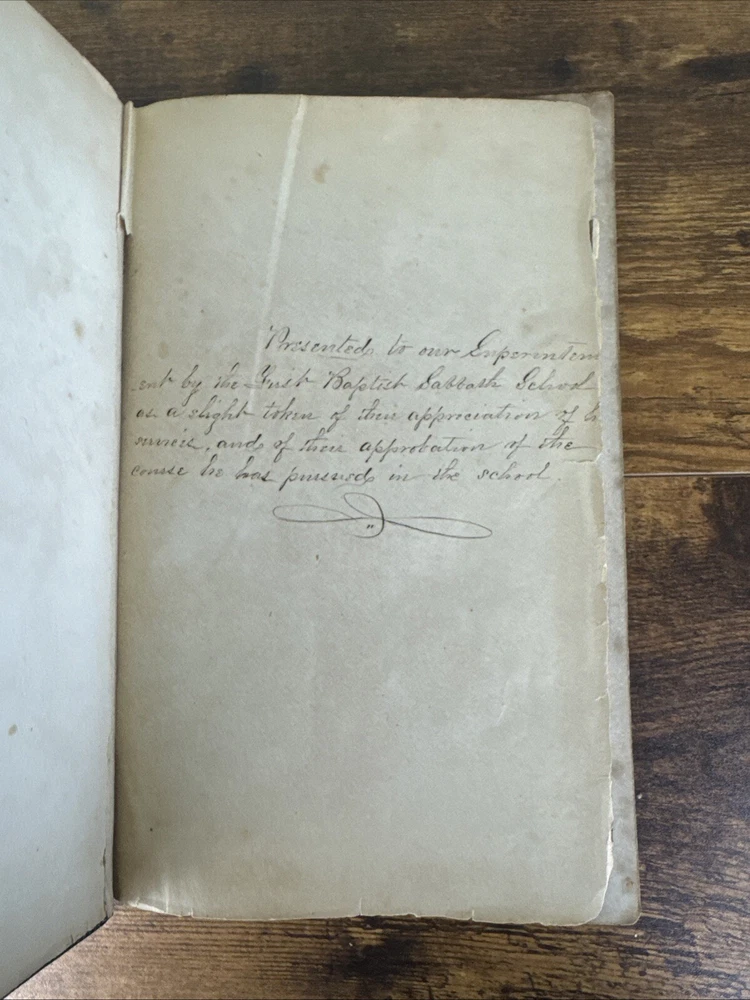 Presented to our Superinten
ent by the First Baptist Sabbath School
as a slight token of their appreciation of h
services, and of their approbation of the
course he has pursued in the school.